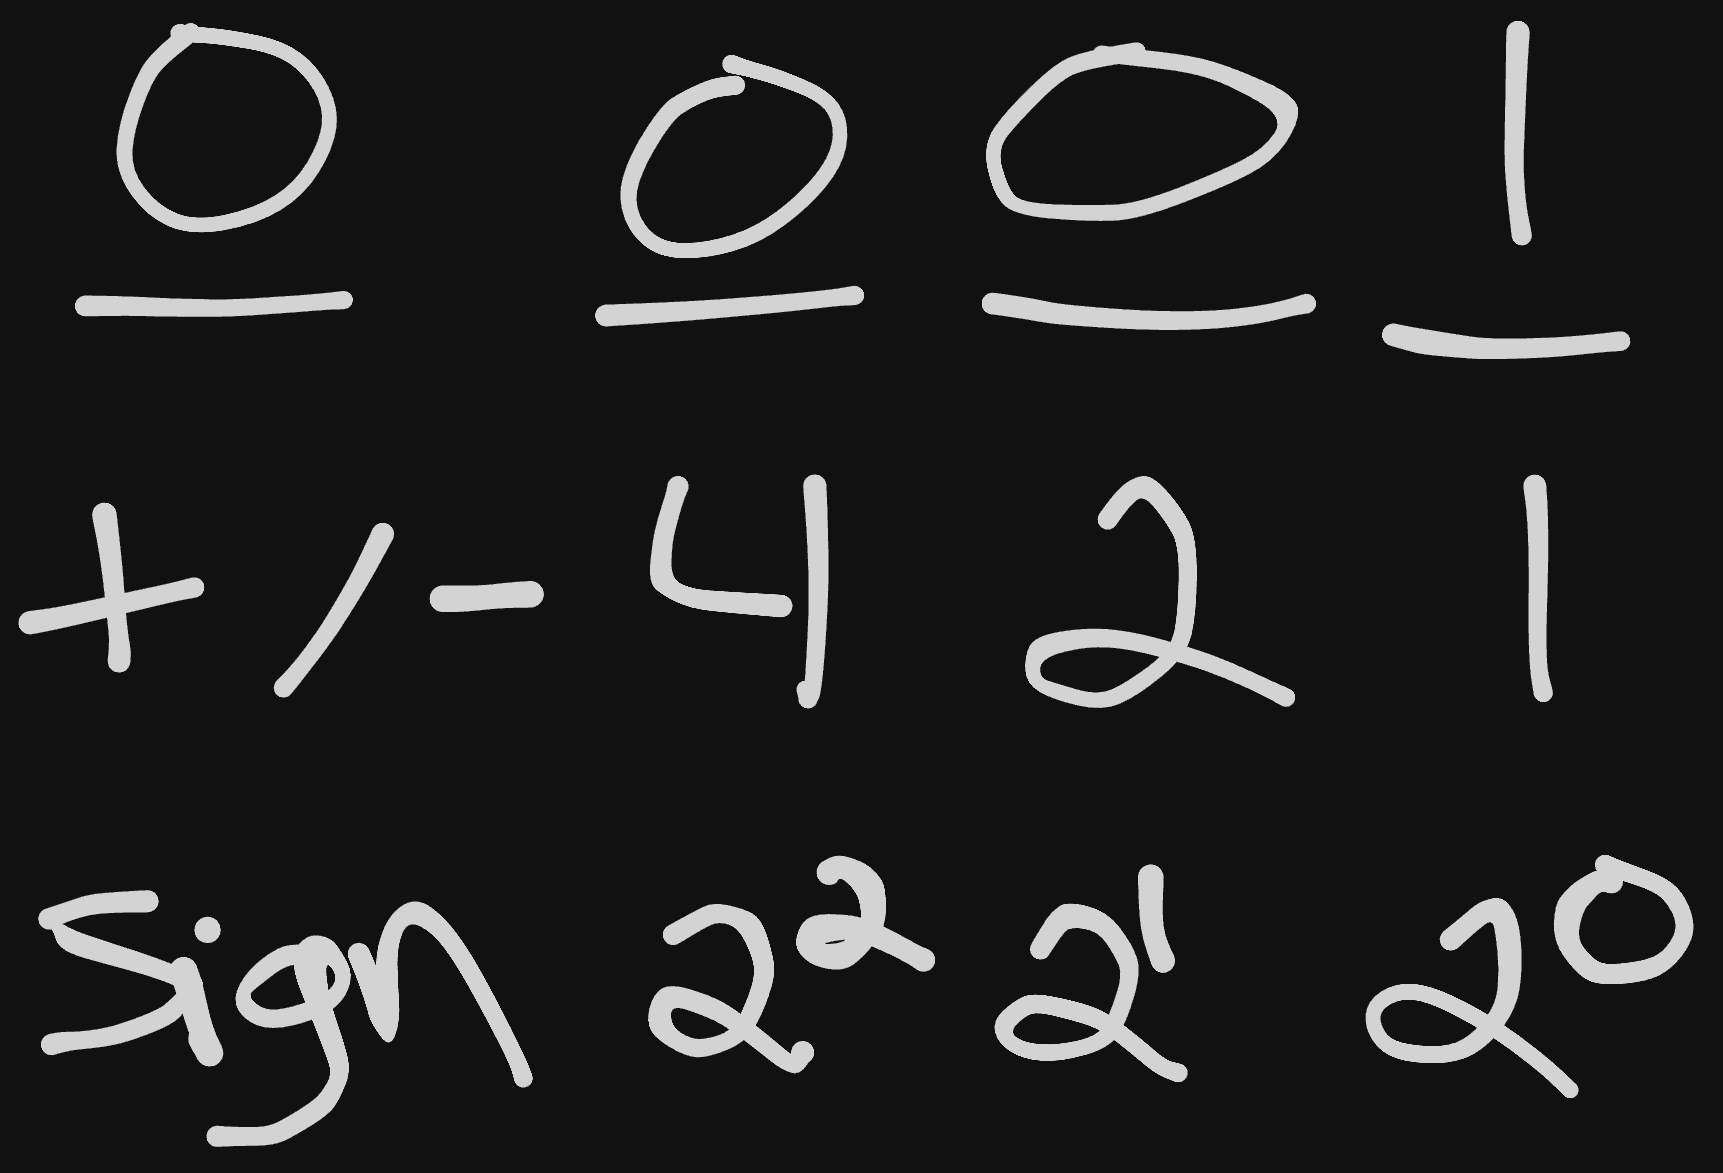 0 0 0 1
+/- 4 2 1
Sign 2² 2¹ 2⁰